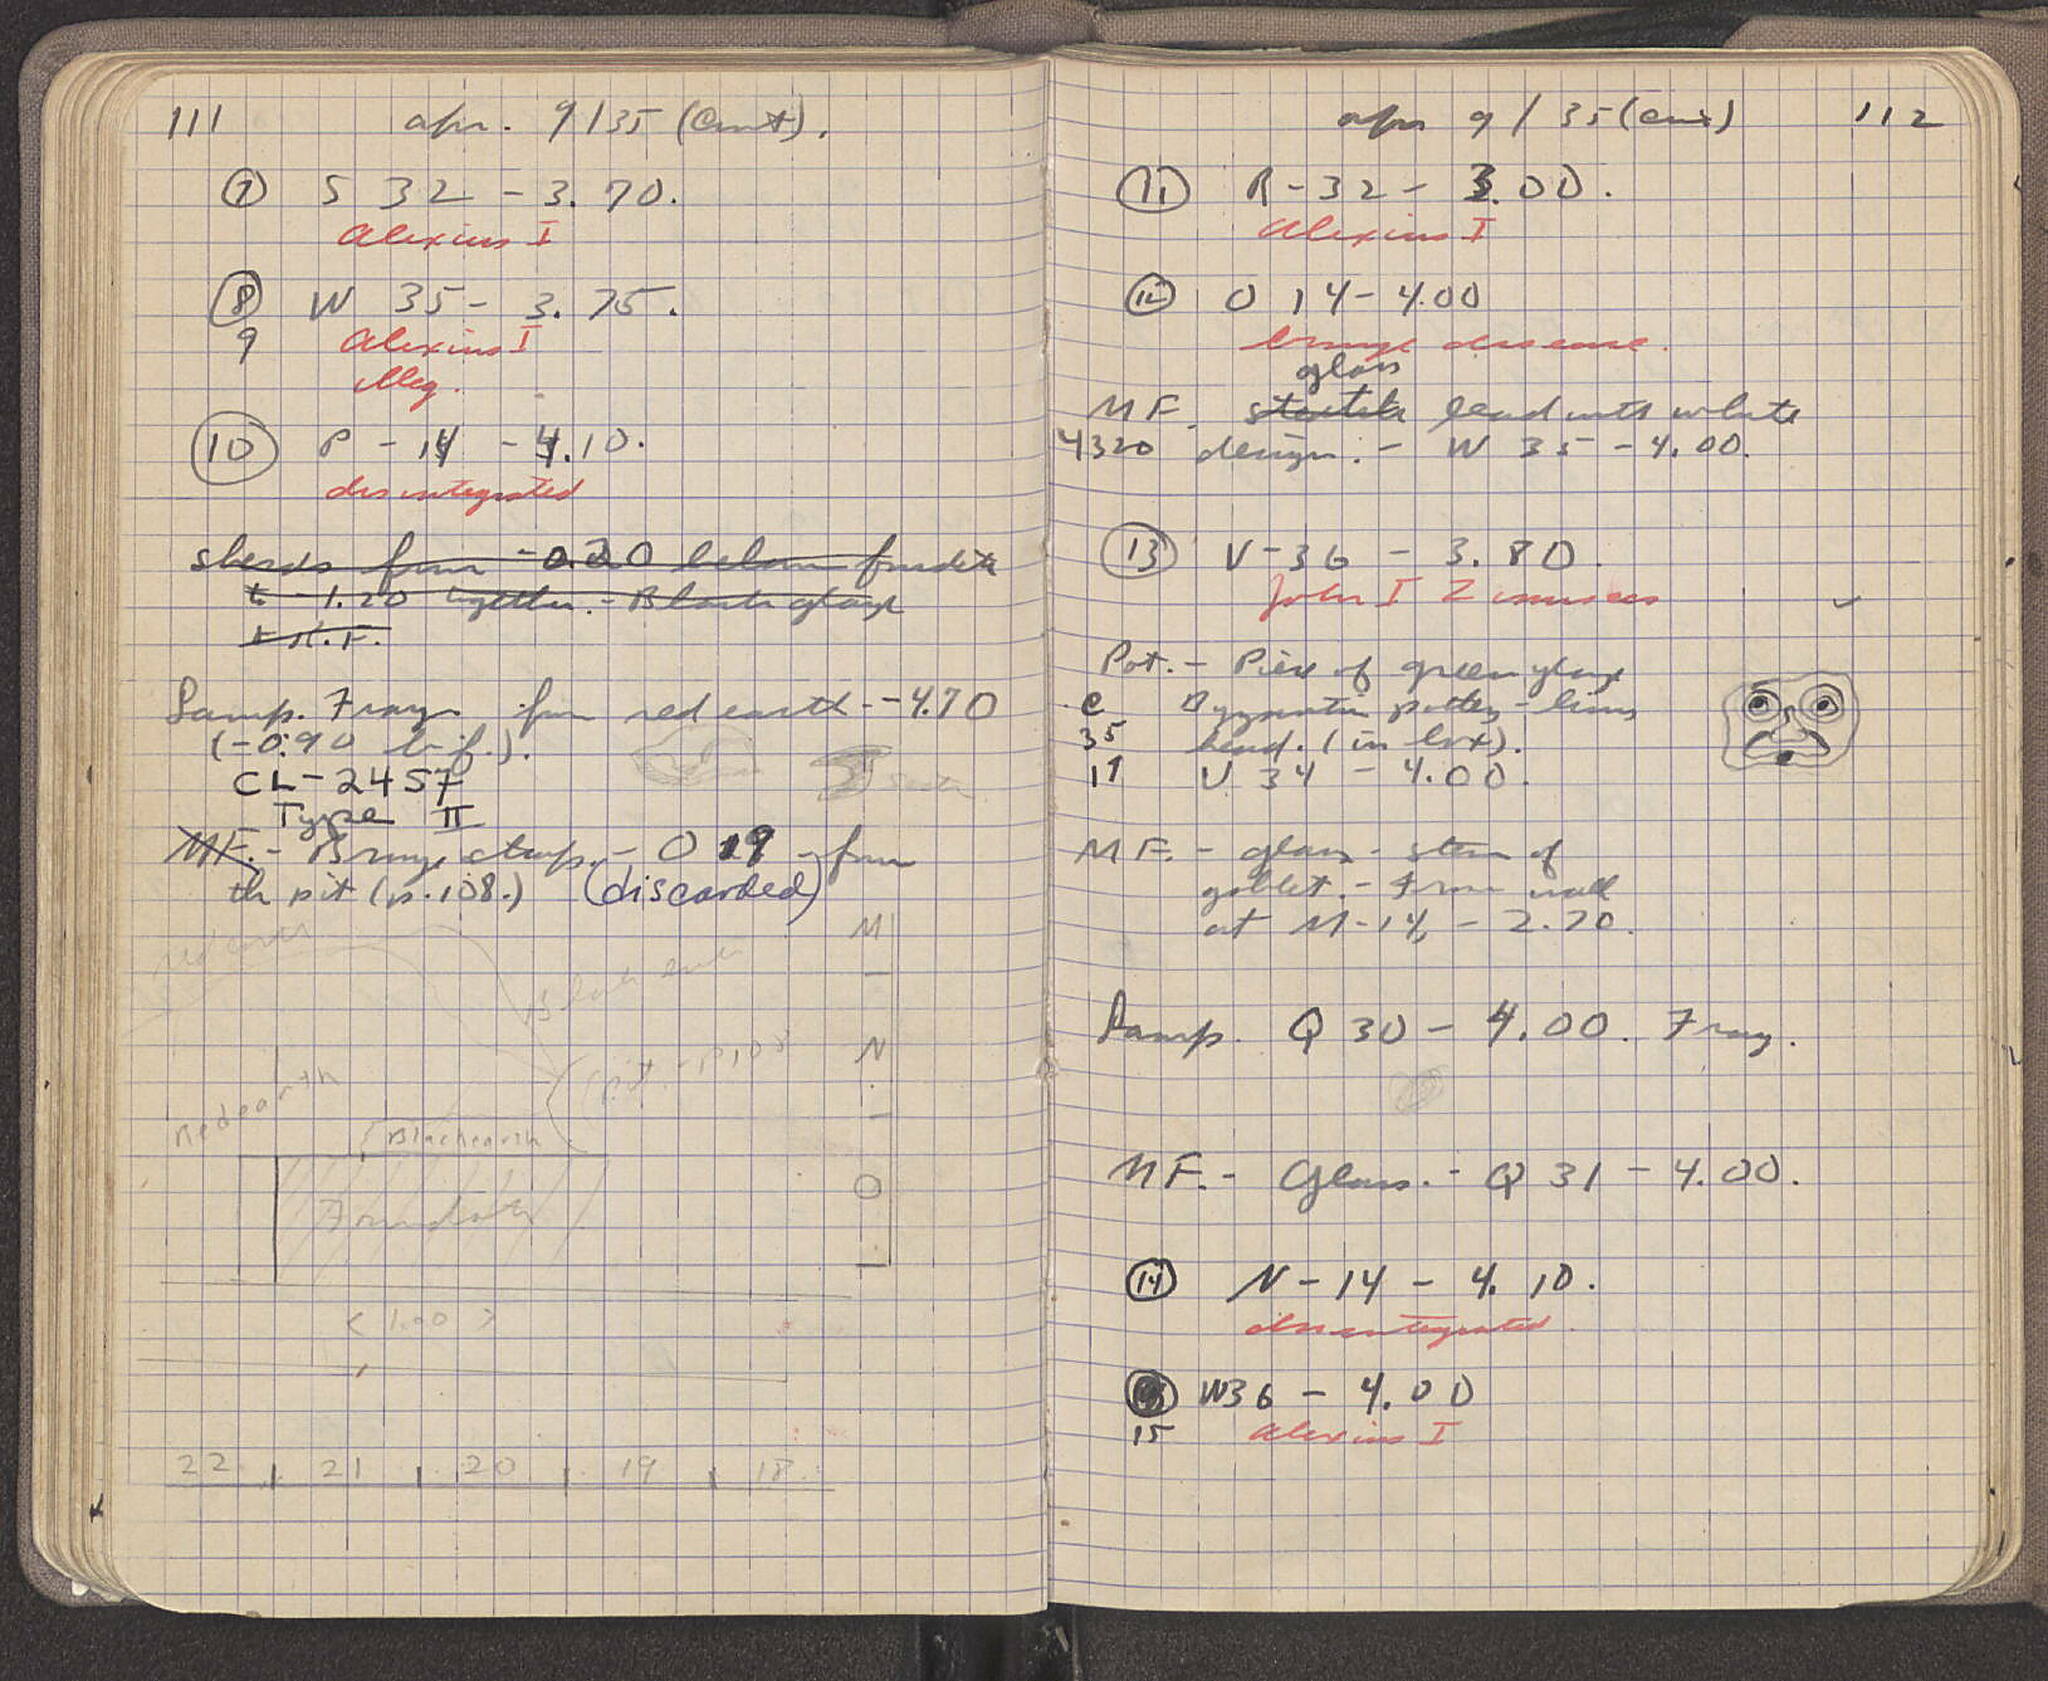 111 Apr. 9/35 (Cont).
7 S 32 - 3.70.
Alexius I
8 W 35 - 3.75.
9 Alexius I
Illeg.
10 P - 14 - 4.10.
disintegrated
sherds from -0.20 below foundatn
to -1.20 together. - Black glaze
+ R.F.
Lamp. Frag. from red earth - -4.70
(-0.90 b.f.).
CL-2457
Type II
South
MF. - Bronze - O 19 - from
the pit (p.108.) (discarded)
M
Red earth
Black earth
N
(Pit. - p.108
Red earth
Black earth
O
Foundatn
< 1.00 >
22 21 20 19 18
Apr 9/35 (Cont) 112
11 R - 32 - 3.00.
Alexius I
12 O 14 - 4.00
bronze disease.
glass
MF. steatite bead with white
4320 design. - W 35 - 4.00.
13 V - 36 - 3.80.
John I Zimisces
Pot. - Piece of green glaze
C Byzantine pottery - lions
35 head. (in box).
17 V 34 - 4.00.
MF. - glass - stem of
goblet. - From wall
at M-14, - 2.70.
Lamp. Q 30 - 4.00. Frag.
MF. - Glass. - Q 31 - 4.00.
14 N - 14 - 4.10.
disintegrated.
W36 - 4.00
15 Alexius I